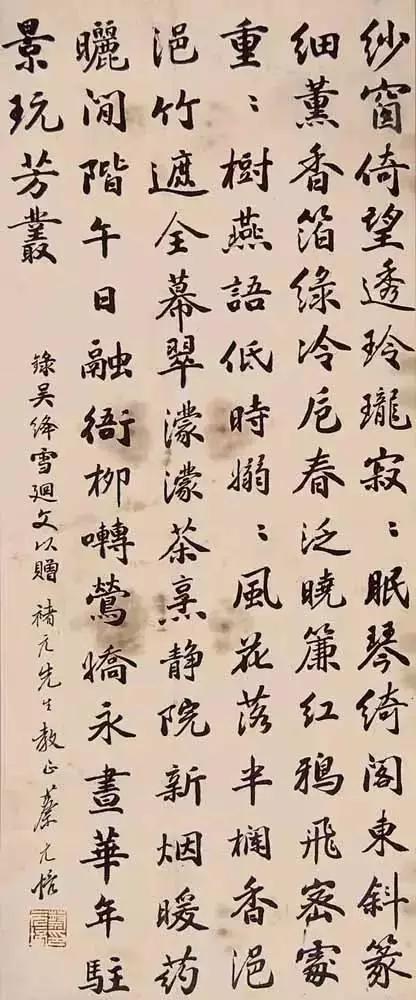 紗窗倚望透玲瓏寂〻眠琴綺閣東斜篆
細薰香箔綠冷卮春泛曉簾紅鴉飛密處
重〻樹燕語低時嫋〻風花落半欄香浥
浥竹遮全幕翠濛濛茶烹静院新烟暖药
曬閒階午日融衙柳囀鶯嬌永晝華年駐
景玩芳叢
錄吳絳雪廻文以贈 先生教正 蔡元培